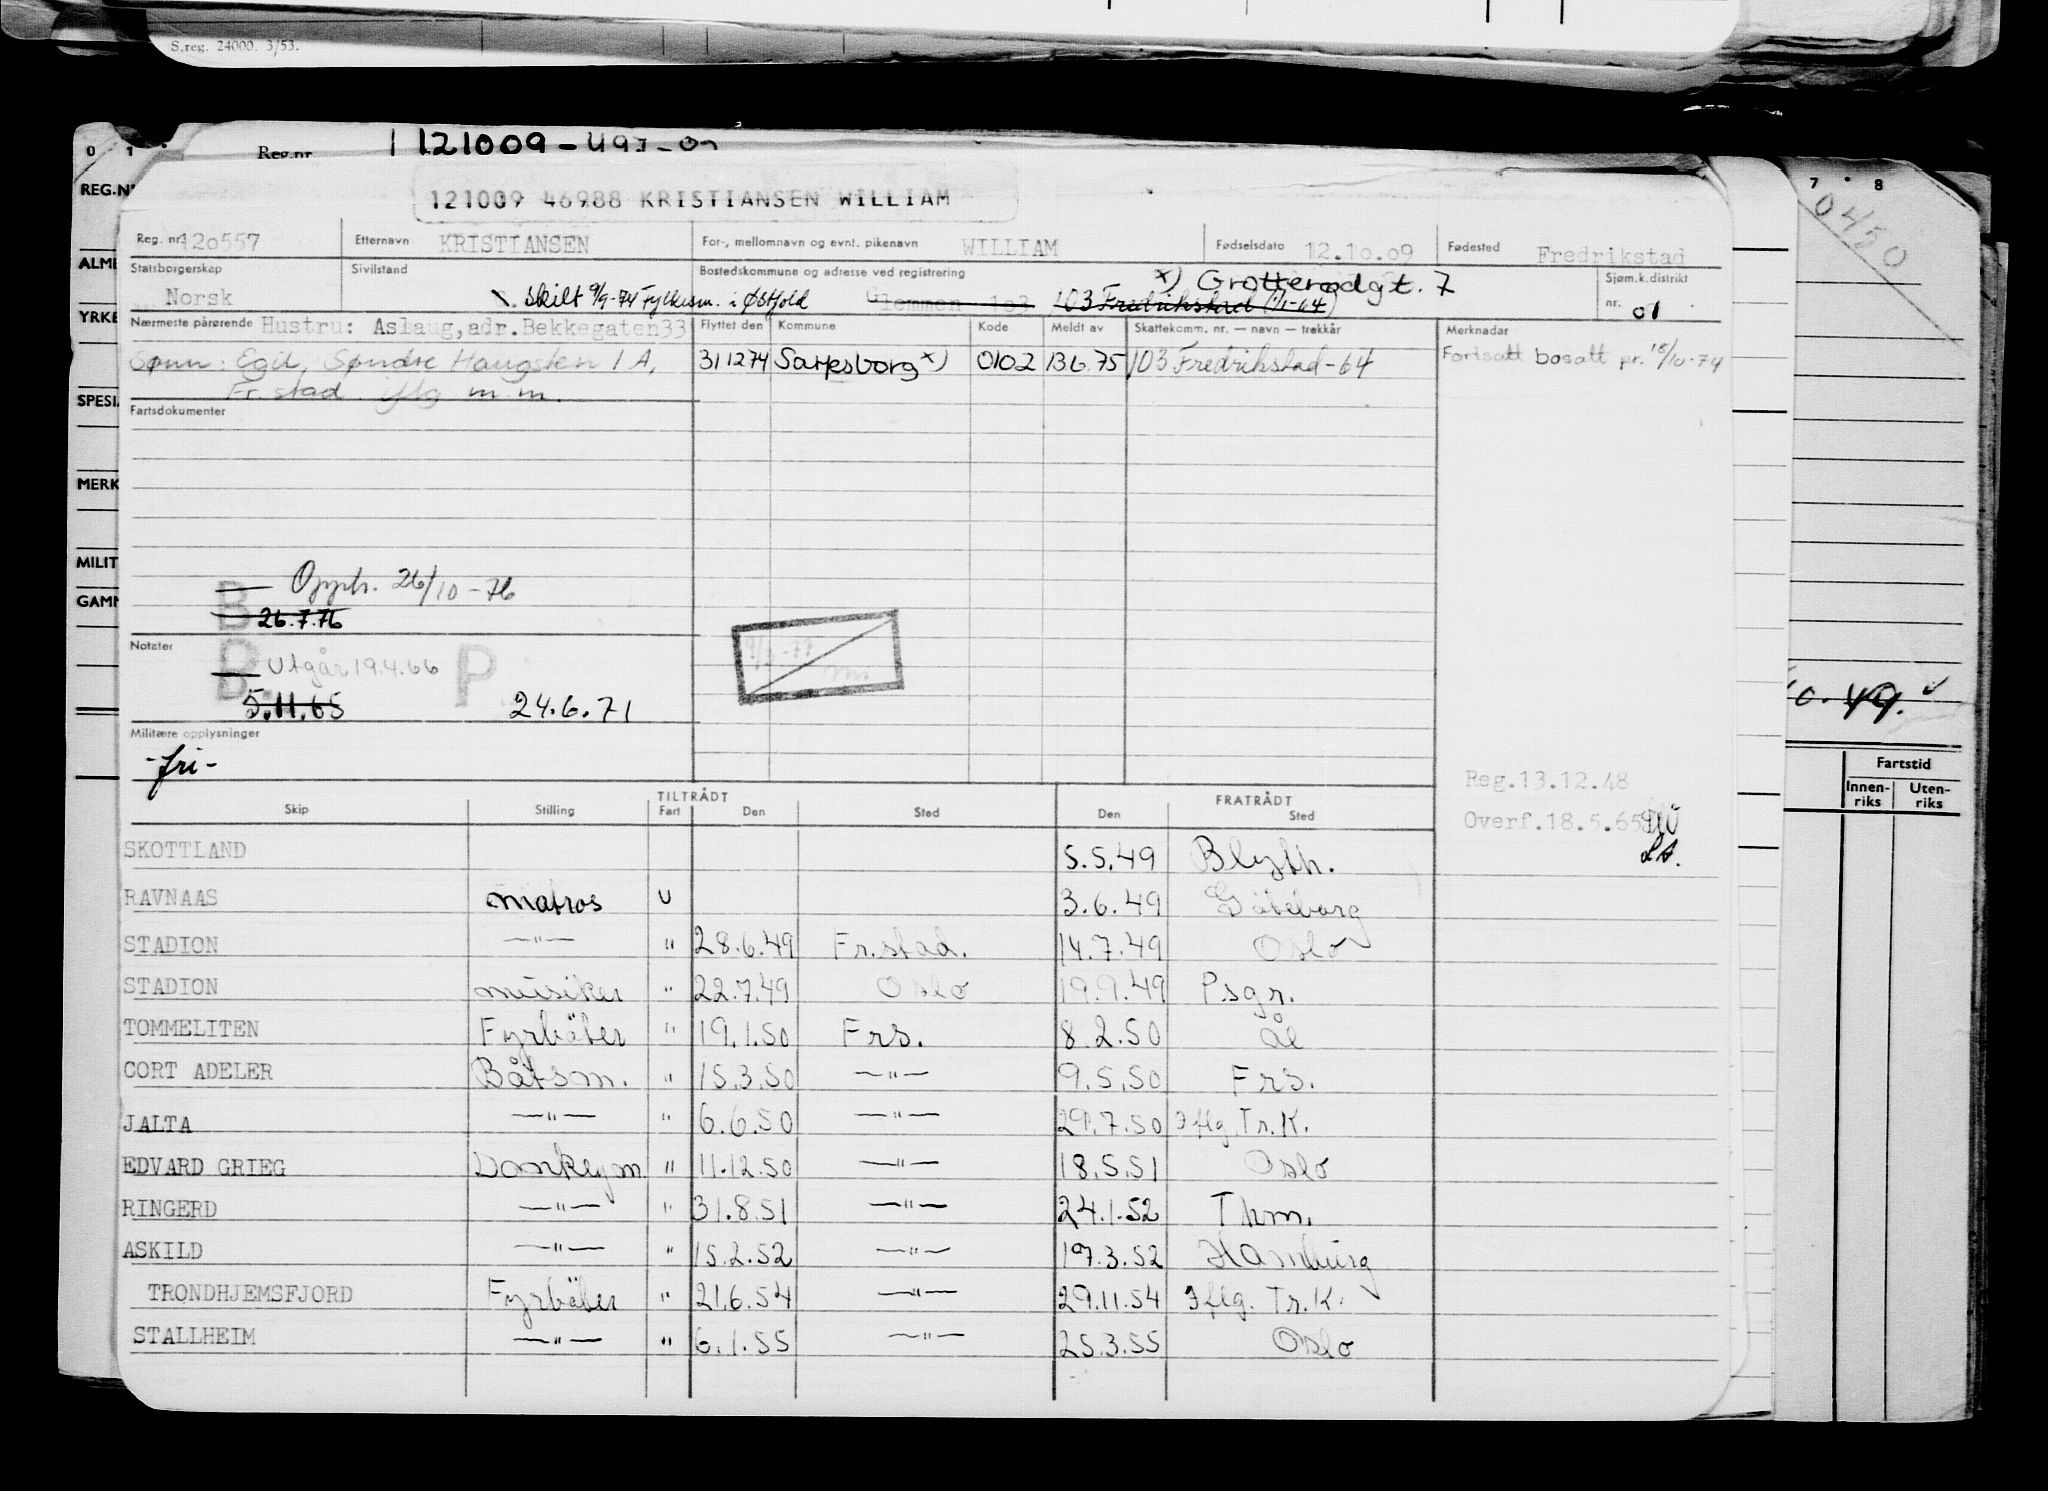 S.reg. 24000. 3/53.
0 1
Reg.nr. 121009 -
REG.N
121009 46988 KRISTIANSEN WILLIAM
7 8
0450
Reg. nr. 120557 Etternavn KRISTIANSEN For-, mellomnavn og evnt. pikenavn WILLIAM Fødselsdato 12.10.09 Fødested Fredrikstad
ALME
Statsborgerskap Sivilstand Bostedskommune og adresse ved registrering x) Grotterødgt. 7 Sjøm.k.distrikt
Norsk Skilt 9/9-74 Fylkesm. i Østfold Glemmen 103 103 Fredrikstad (1/1-64) nr. 01
YRKE
Nærmeste pårørende Hustru: Aslaug, adr. Bekkegaten 33 Flyttet den Kommune Kode Meldt av Skattekomm. nr. — navn — trekkår Merknader
Sønn: Egil, Søndre Haugsten 1 A, 311274 Sarpsborg x) 0102 13.6.75 103 Fredrikstad-64 Fortsatt bosatt pr. 18/10-74
Fr.stad iflg m.m.
SPESI
Fartsdokumenter
MERK
MILIT
GAMM
B Opph. 26/10-76
26.7.76
Notater
B Utgår 19.4.66 P
5.11.65 24.6.71
Militære opplysninger
-fri-
49.
Fartstid
Innen-riks Uten-riks
Reg.13.12.48
Overf.18.5.65
TILTRÅDT FRATRÅDT
Skip Stilling Fart Den Sted Den Sted
SKOTTLAND 5.5.49 Blyth.
RAVNAAS matros U 3.6.49 Göteborg
STADION —"— " 28.6.49 Fr.stad. 14.7.49 Oslo
STADION musiker " 22.7.49 Oslo 19.9.49 Psgr.
TOMMELITEN Fyrbøter " 19.1.50 Frs. 8.2.50 Ål
CORT ADELER Båtsm. " 15.3.50 —"— 9.5.50 Frs.
JALTA —"— " 6.6.50 —"— 29.7.50 Iflg. Tr.K.
EDVARD GRIEG Donkeym. " 11.12.50 —"— 18.5.51 Oslo
RINGERD —"— " 31.8.51 —"— 24.1.52 Thm.
ASKILD —"— " 15.2.52 —"— 19.3.52 Hamburg
TRONDHJEMSFJORD Fyrbøter " 21.6.54 —"— 29.11.54 Iflg. Tr.K.
STALLHEIM —"— " 6.1.55 —"— 25.3.55 Oslo